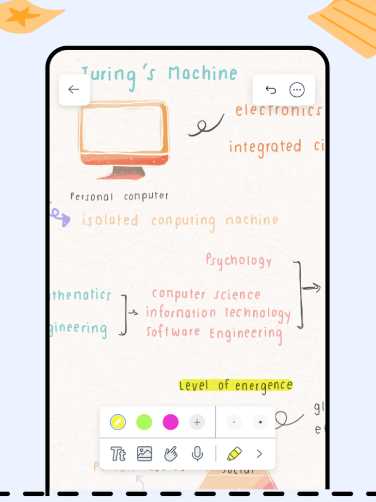 Turing's Machine
electronics
integrated ci
Personal computer
isolated computing machine
Psychology
thematics
computer science
information technology
gineering
software Engineering
Level of emergence
gl
e
Tt
social